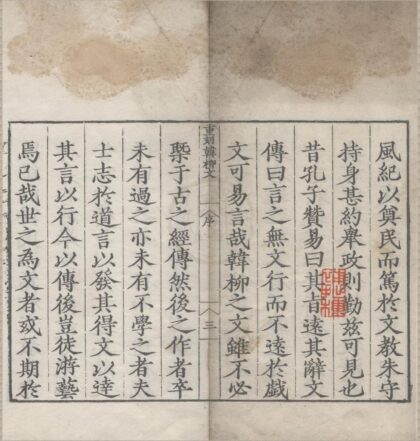 風紀以興民而篤於文教朱守
持身甚約舉政則勤茲可見也
昔孔子贊易曰其旨遠其辭文
傳曰言之無文行而不遠於戲
文可易言哉韓柳之文雖不必
重刻韓柳文 序 三
槩于古之經傳然後之作者卒
未有過之亦未有不學之者夫
士志於道言以發其得文以達
其言以行今以傳後豈徒游藝
焉已哉世之為文者或不期於